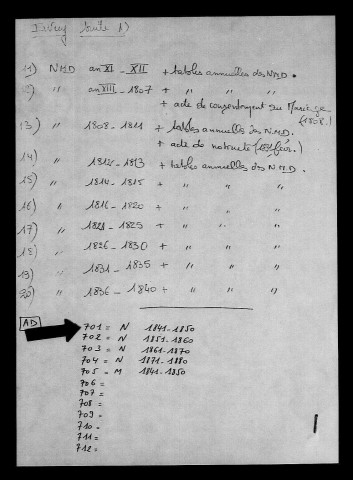 Evry (suite 1)
11) NMD an XI - XII + tables annuelles des NMD.
12) " an XIII - 1807 + " " "
+ acte de consentement au Mariage (1808.)
13) " 1808 - 1811 + tables annuelles des NMD.
+ acte de notoriété
14) " 1812 - 1813 + tables annuelles des NMD.
15) " 1814 - 1815 + " " "
16) " 1816 - 1820 + " " "
17) " 1821 - 1825 + " " "
18) " 1826 - 1830 + " " "
19) " 1831 - 1835 + " " "
20) " 1836 - 1840 + " " "
AD
701 = N 1841-1850
702 = N 1851-1860
703 = N 1861-1870
704 = N 1871-1880
705 = M 1841-1850
706 =
707 =
708 =
709 =
710 =
711 =
712 =